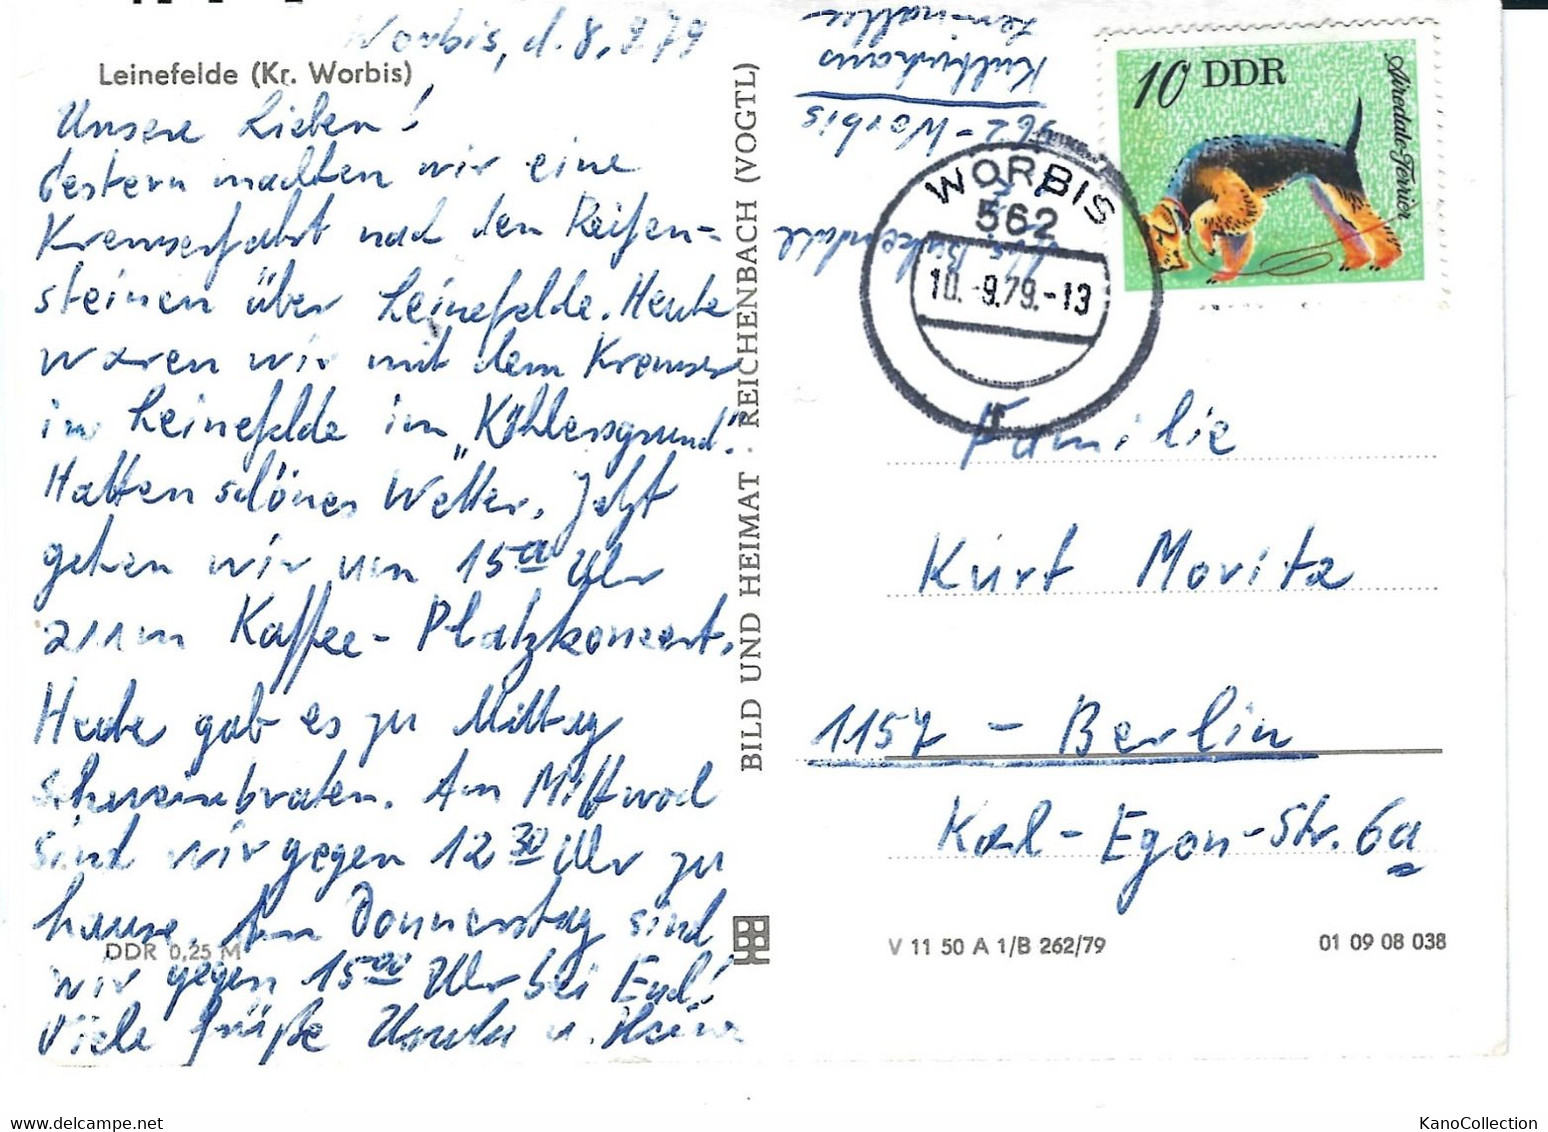 Worbis, d. 8.9.79
Leinefelde (Kr. Worbis)
Unsere Lieben!
Gestern machten wir eine
Kremserfahrt nach den Reifen-
steinen über Leinefelde. Heute
waren wir mit dem Kremser
in Leinefelde im „Köhlersgrund".
Hatten schönes Wetter. Jetzt
gehen wir um 15 00 Uhr
zum Kaffee-Platzkonzert.
Heute gab es zu Mittag
Schweinebraten. Am Mittwoch
sind wir gegen 12 30 Uhr zu
hause. Am Donnerstag sind
wir gegen 15 00 Uhr bei Euch!
Viele Grüße Ursula u. Heinz
DDR 0,25 M
BILD UND HEIMAT · REICHENBACH (VOGTL)
Kulturhaus
562 - Worbis
Birkendahl
WORBIS
562
10.-9.79.-13
10 DDR
Airedale-Terrier
Familie
Kurt Moritz
1157 - Berlin
Karl-Egon-Str. 6a
V 11 50 A 1/B 262/79
01 09 08 038
KanoCollection